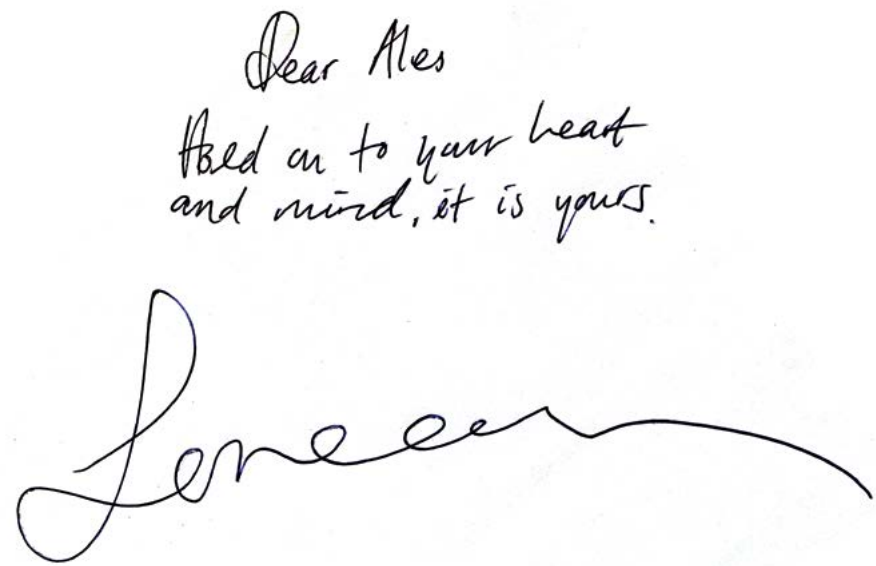 Dear Ales
Hold on to your heart
and mind, it is yours.
Loreen